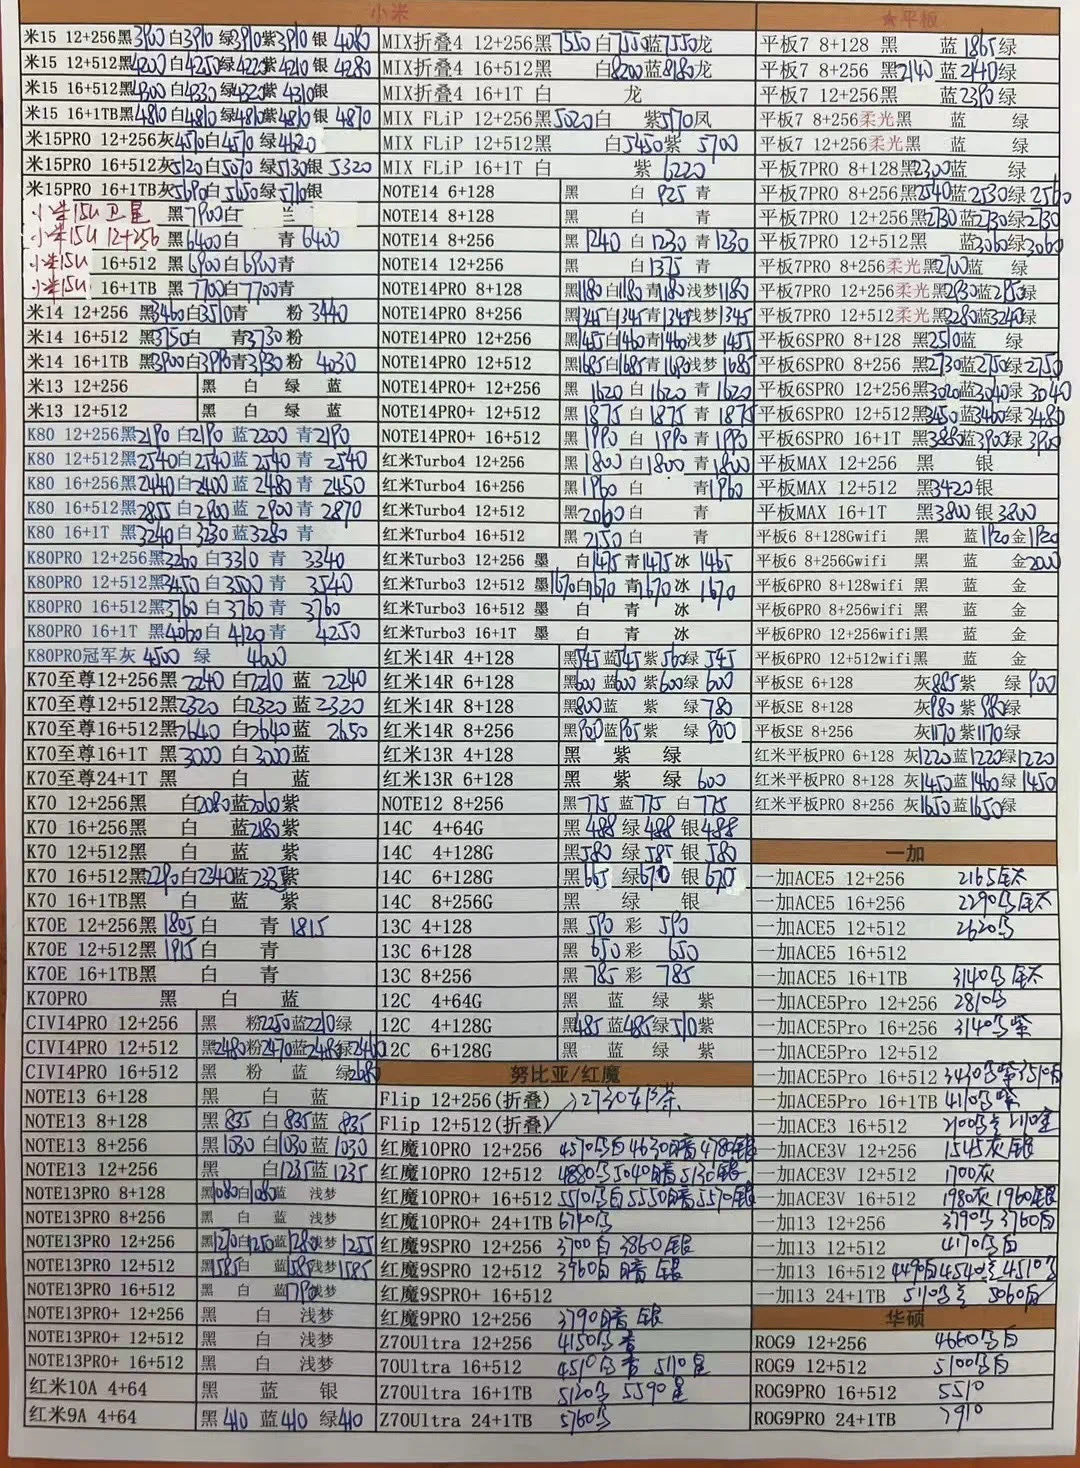 小米
米15 12+256黑3900白3910绿3910紫3910银 4080
米15 12+512黑4200白4250绿4220紫4210银 4280
米15 16+512黑4300白4330绿4320紫4310银
米15 16+1TB黑4810白4810绿4810紫4810银 4870
米15PRO 12+256灰4510白4570绿4620
米15PRO 16+512灰5120白5070绿5130银 5320
米15PRO 16+1TB灰5690白5650绿5710银
小米15U 卫星 黑7900白 兰
小米15U 12+256 黑6400白 青6400
小米15U 16+512 黑6900白6900青
小米15U 16+1TB 黑7700白7700青
米14 12+256 黑3460白3510青 粉 3440
米14 16+512 黑3750白 青3730粉
米14 16+1TB 黑3900白3990青3930粉 4030
米13 12+256 黑 白 绿 蓝
米13 12+512 黑 白 绿 蓝
K80 12+256黑2190 白2190 蓝2200 青2190
K80 12+512黑2540白2540蓝 2540 青 2540
K80 16+256黑2440白2400 蓝2480 青 2450
K80 16+512黑2855白2900蓝 2900 青 2870
K80 16+1T 黑3240白3230 蓝3280 青
K80PRO 12+256黑3260白3310 青 3340
K80PRO 12+512黑3450白3500 青 3540
K80PRO 16+512黑3760白3760 青 3760
K80PRO 16+1T 黑4060白4120 青 4250
K80PRO冠军灰 4500 绿 4600
K70至尊12+256黑 2240 白2210 蓝 2240
K70至尊12+512黑2320 白2320 蓝2320
K70至尊16+512黑2640 白2640蓝 2650
K70至尊16+1T 黑 3000 白3000蓝
K70至尊24+1T 黑 白 蓝
K70 12+256黑 白2080蓝2060紫
K70 16+256黑 白 蓝2180紫
K70 12+512黑 白 蓝 紫
K70 16+512黑2290白2340蓝2335紫
K70 16+1TB黑 白 蓝 紫
K70E 12+256黑 1805白 青 1815
K70E 12+512黑 1915白 青
K70E 16+1TB黑 白 青
K70PRO 黑 白 蓝
CIVI4PRO 12+256 黑 粉2250蓝2210绿
CIVI4PRO 12+512 黑2480粉2470蓝2480绿2460
CIVI4PRO 16+512 黑 粉 蓝 绿2680
NOTE13 6+128 黑 白 蓝
NOTE13 8+128 黑835 白835蓝 835
NOTE13 8+256 黑1030白1030蓝 1030
NOTE13 12+256 黑 白1235蓝1235
NOTE13PRO 8+128 黑1080白1080蓝 浅梦
NOTE13PRO 8+256 黑 白 蓝 浅梦
NOTE13PRO 12+256 黑1270白1250蓝1280浅梦 1255
NOTE13PRO 12+512 黑1585白 蓝1585浅梦1585
NOTE13PRO 16+512 黑 白 蓝1790浅梦
NOTE13PRO+ 12+256 黑 白 浅梦
NOTE13PRO+ 12+512 黑 白 浅梦
NOTE13PRO+ 16+512 黑 白 浅梦
红米10A 4+64 黑 蓝 银
红米9A 4+64 黑 410 蓝410 绿410
MIX折叠4 12+256黑7550白7550蓝7550龙
MIX折叠4 16+512黑 白8200蓝8180龙
MIX折叠4 16+1T 白 龙
MIX FLiP 12+256黑5020白 紫5170凤
MIX FLiP 12+512黑 白5450紫 5700
MIX FLiP 16+1T 白 紫 6220
NOTE14 6+128 黑 白 925 青
NOTE14 8+128 黑 白 青
NOTE14 8+256 黑1240 白1230 青1230
NOTE14 12+256 黑 白1375 青
NOTE14PRO 8+128 黑1180白1180青1180浅梦1180
NOTE14PRO 8+256 黑1345白1345青1345浅梦1345
NOTE14PRO 12+256 黑1455白1460青1460浅梦1455
NOTE14PRO 12+512 黑1685白1685青1690浅梦1685
NOTE14PRO+ 12+256 黑 1620 白1620 青1620
NOTE14PRO+ 12+512 黑 1875 白1875 青1875
NOTE14PRO+ 16+512 黑1990 白 1990 青1990
红米Turbo4 12+256 黑1800 白1800 青1800
红米Turbo4 16+256 黑1960 白 青1960
红米Turbo4 12+512 黑2060白 青
红米Turbo4 16+512 黑 2150白 青
红米Turbo3 12+256 墨 白1475青1475冰 1465
红米Turbo3 12+512 墨1670白1670青1670冰 1670
红米Turbo3 16+512 墨 白 青 冰
红米Turbo3 16+1T 墨 白 青 冰
红米14R 4+128 黑545蓝545紫560绿 545
红米14R 6+128 黑600蓝600紫600绿 600
红米14R 8+128 黑800蓝 紫 绿780
红米14R 8+256 黑900蓝905紫 绿 900
红米13R 4+128 黑 紫 绿
红米13R 6+128 黑 紫 绿 600
NOTE12 8+256 黑775 蓝775 白 775
14C 4+64G 黑 488 绿 488 银488
14C 4+128G 黑580 绿 585 银 580
14C 6+128G 黑 665 绿670 银 670
14C 8+256G 黑 绿 银
13C 4+128 黑 590 彩 590
13C 6+128 黑 650彩 650
13C 8+256 黑 785 彩 785
12C 4+64G 黑 蓝 绿 紫
12C 4+128G 黑485蓝485绿510紫
12C 6+128G 黑 蓝 绿 紫
努比亚/红魔
Flip 12+256(折叠) 2730
Flip 12+512(折叠)
红魔10PRO 12+256 4570乌白4630暗4780银
红魔10PRO 12+512 4880乌5040暗5130银
红魔10PRO+ 16+512 5510乌白5550暗5570银
红魔10PRO+ 24+1TB 6740乌
红魔9SPRO 12+256 3700白 3860银
红魔9SPRO 12+512 3960白 暗 银
红魔9SPRO+ 16+512
红魔9PRO 12+256 3790暗 银
Z70Ultra 12+256 4150乌 青
70Ultra 16+512 4510乌青 5110星
Z70Ultra 16+1TB 5120乌 5590星
Z70Ultra 24+1TB 5760乌
★平板
平板7 8+128 黑 蓝1865绿
平板7 8+256 黑2140蓝2140绿
平板7 12+256黑 蓝2390绿
平板7 8+256柔光黑 蓝 绿
平板7 12+256柔光黑 蓝 绿
平板7PRO 8+128黑2300蓝 绿
平板7PRO 8+256黑2540蓝2530绿2560
平板7PRO 12+256黑2730蓝2730绿2730
平板7PRO 12+512黑 蓝3060绿3060
平板7PRO 8+256柔光黑2700蓝 绿
平板7PRO 12+256柔光黑2930蓝2950绿
平板7PRO 12+512柔光黑3280蓝3240绿
平板6SPRO 8+128 黑2510蓝 绿
平板6SPRO 8+256 黑2730蓝2750绿2750
平板6SPRO 12+256黑3020蓝3040绿3040
平板6SPRO 12+512黑3450蓝3460绿3480
平板6SPRO 16+1T 黑3880蓝3900绿3900
平板MAX 12+256 黑 银
平板MAX 12+512 黑3420银
平板MAX 16+1T 黑3800银3800
平板6 8+128Gwifi 黑 蓝1920金1920
平板6 8+256Gwifi 黑 蓝 金2000
平板6PRO 8+128wifi 黑 蓝 金
平板6PRO 8+256wifi 黑 蓝 金
平板6PRO 12+256wifi黑 蓝 金
平板6PRO 12+512wifi黑 蓝 金
平板SE 6+128 灰885紫 绿900
平板SE 8+128 灰980紫980绿
平板SE 8+256 灰1170紫1170绿
红米平板PRO 6+128 灰1220蓝1220绿1220
红米平板PRO 8+128 灰1450蓝1460绿1450
红米平板PRO 8+256 灰1650蓝1650绿
一加
一加ACE5 12+256 2165钛
一加ACE5 16+256 2290乌钛
一加ACE5 12+512 2620乌
一加ACE5 16+512
一加ACE5 16+1TB 3140乌钛
一加ACE5Pro 12+256 2810乌
一加ACE5Pro 16+256 3140乌紫
一加ACE5Pro 12+512
一加ACE5Pro 16+512 3430乌紫3510白
一加ACE5Pro 16+1TB 4110乌紫
一加ACE3 16+512 2100乌 2110
一加ACE3V 12+256 1545灰银
一加ACE3V 12+512 1700灰
一加ACE3V 16+512 1980灰1960银
一加13 12+256 3790乌3760白
一加13 12+512 4170乌白
一加13 16+512 4490白4540兰4510乌
一加13 24+1TB 5110乌兰 5060白
华硕
ROG9 12+256 4660乌白
ROG9 12+512 5100乌白
ROG9PRO 16+512 5510
ROG9PRO 24+1TB 7910